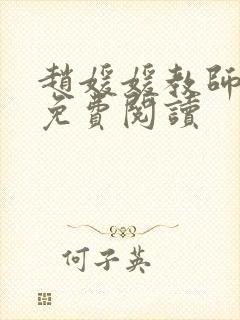 趙媛媛教師
免費閱讀
何子英